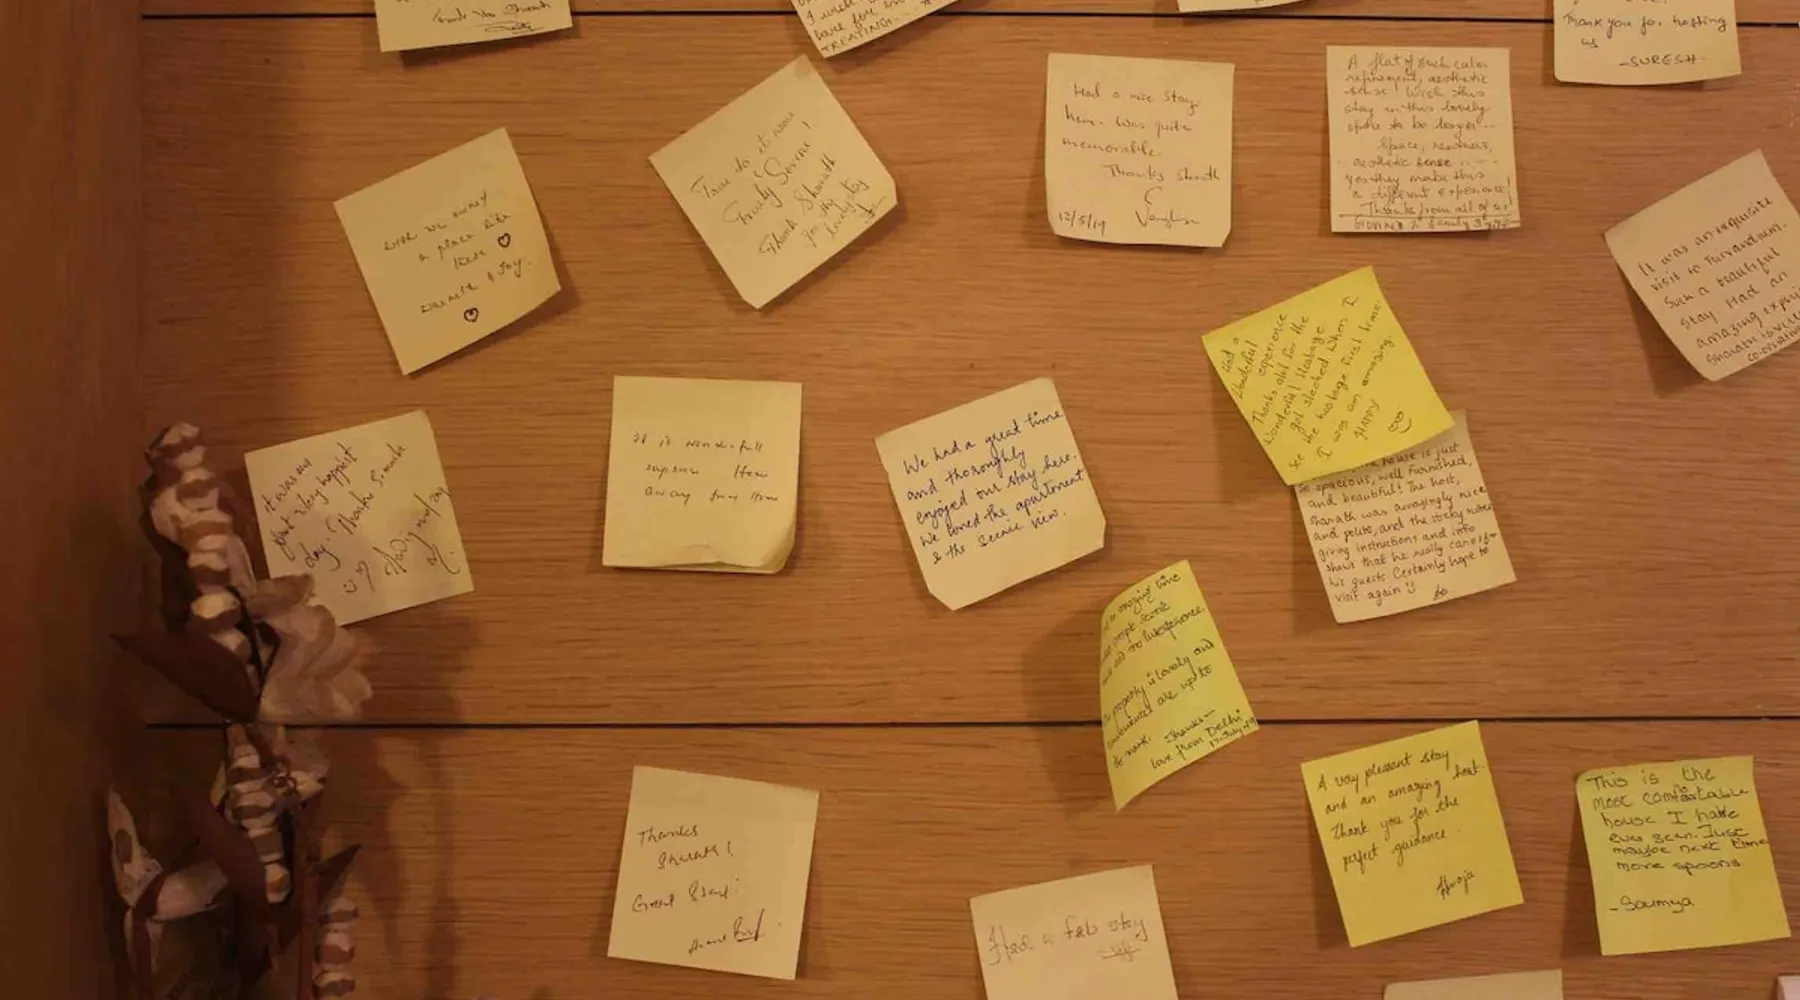 Thank You Sharath
I wish
have for
TREATING...
Thank you for hosting
us
-SURESH-
wish we owned
a place like
this
& Joy.
True to its name
Truly Serene!
Thank Sharath
for the
lovely stay
Had a nice stay
here. Was quite
memorable.
Thanks Sharath
12/5/19
A flat of such calm
refinement, aesthetic
sense! Wish this
stay in this lovely
space to be longer...
Space, neatness,
aesthetic sense
yes they make this
a different experience!
Thanks from all of us
& family
It was an exquisite
visit to Trivandrum.
Such a beautiful
stay. Had an
amazing
Sharath is very
It was our
first stay
day. Thanks Sharath
It is wonderfull
home
away from home
We had a great time
and thoroughly
enjoyed our stay here.
We loved the apartment
& the scenic view.
Had a
Wonderful
experience
Thanks alot for the
Wonderful
got shocked when I
see the first time.
I was an amazing.
Happy!
house is just
so spacious, well furnished,
and beautiful! The host,
Sharath was amazingly nice
and polite, and the sticky notes
giving instructions and info
shows that he really cares for
his guests. Certainly hope to
visit again
amazing time
property is lovely and
are up to
the mark. Thanks-
love from Delhi
17-July-19
A very pleasant stay
and an amazing host.
Thank you for the
perfect guidance.
This is the
most comfortable
house I have
ever seen. Just
maybe next time
more spoons
-Soumya
Thanks
Sharath!
Great Stay!
Had a fab stay